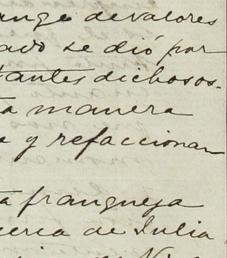 ange de valores
avo se dió por
tantes dichosos.
ta manera
e y refaccionan
ta franqueja
cerca de Julia